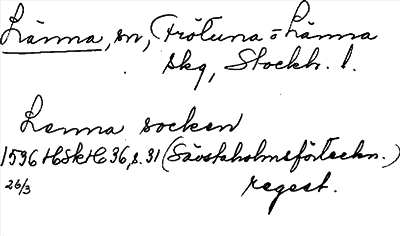 Länna, sn, Frötuna = Länna
skg, Stockh. l.
Lenna socken
1536 HSkH 36, s. 31 (Sävstaholmsförteckn.)
26/3 regest.